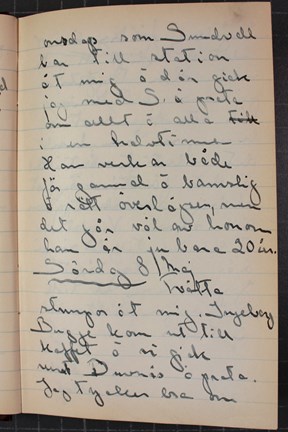 onsdags som Sundvall
bar till station
åt mig ö där gick
jag med S. ö prata
om allt ö alla
i en halvtimme
Han verkar både
för gammal ö barnslig
ö rätt överlägsen, men
det gör väl av honom
han är ju bara 20 år.
Söndag 8/Maj
Tvätta
strumpor åt mig. Ingeborg
Bugge kom ut till
kaffet ö vi gick
ö prata.
Jag tycker bra om